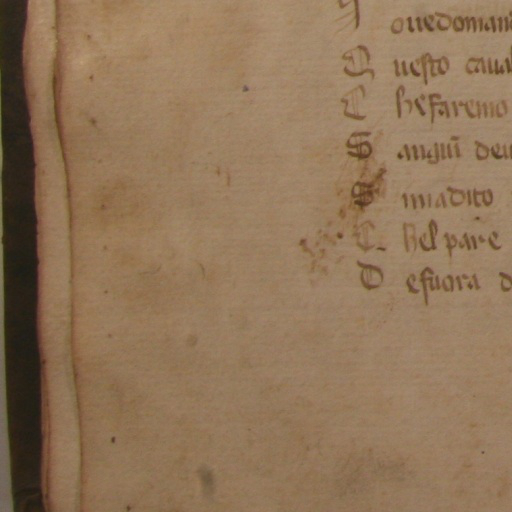 ouedoman
Questo caual
C he faremo
S anguī deu
S inadito
C hel pare
D efuora d